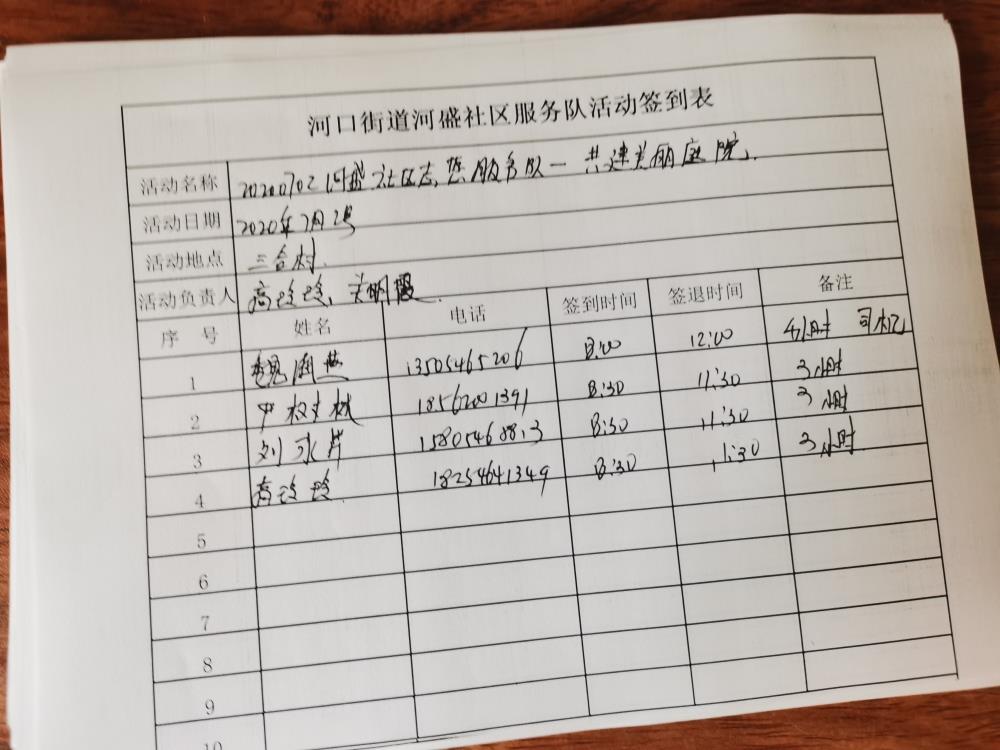 河口街道河盛社区服务队活动签到表
活动名称 20200702河盛社区志愿服务队—共建美丽庭院.
活动日期 2020年7月2号
活动地点 三合村.
活动负责人 高玲玲、关明霞.
序 号 姓名 电话 签到时间 签退时间 备注
1 13505465206 8:00 12:00 4小时 司机
2 18562001391 8:30 11:30 3小时
3 刘永芹 8:30 11:30 3小时
4 高玲玲. 18254641349 8:30 11:30 3小时.
5
6
7
8
9
10